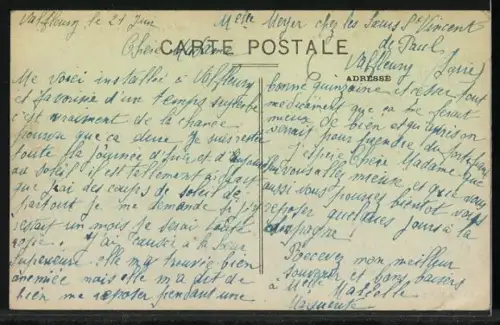 Valfleury le 21 Juin
Melle Meyer chez les Sœurs St Vincent
de Paul
Valfleury (Loire)
Chère Madame
CARTE POSTALE
ADRESSE
Me voici installée à Valfleury
et favorisée d'un temps superbe
c'est vraiment de la chance
pourvu que ça dure. Je suis restée
toute la journée d'hier et d'aujourd'hui
au soleil il est tellement
que j'ai des coups de soleil de
partout je me demande si j'y
restait un mois je serai toute
J'ai causée à la Sœur
Supérieure elle m'a trouvée bien
anémiée mais elle m'a dit de
bien me reposer pendant une
bonne quinzaine et c'est tout
médicament que ça te ferait
mieux de bien et qu'après on
verrait pour prendre du fortifiant
J'espère Chère Madame que
vous allez mieux et que vous
aussi vous pourrez bientôt vous
reposer quelques jours à la
campagne !
Recevez mon meilleur
souvenir et bons baisers
à Melle Marcelle
Marguerite